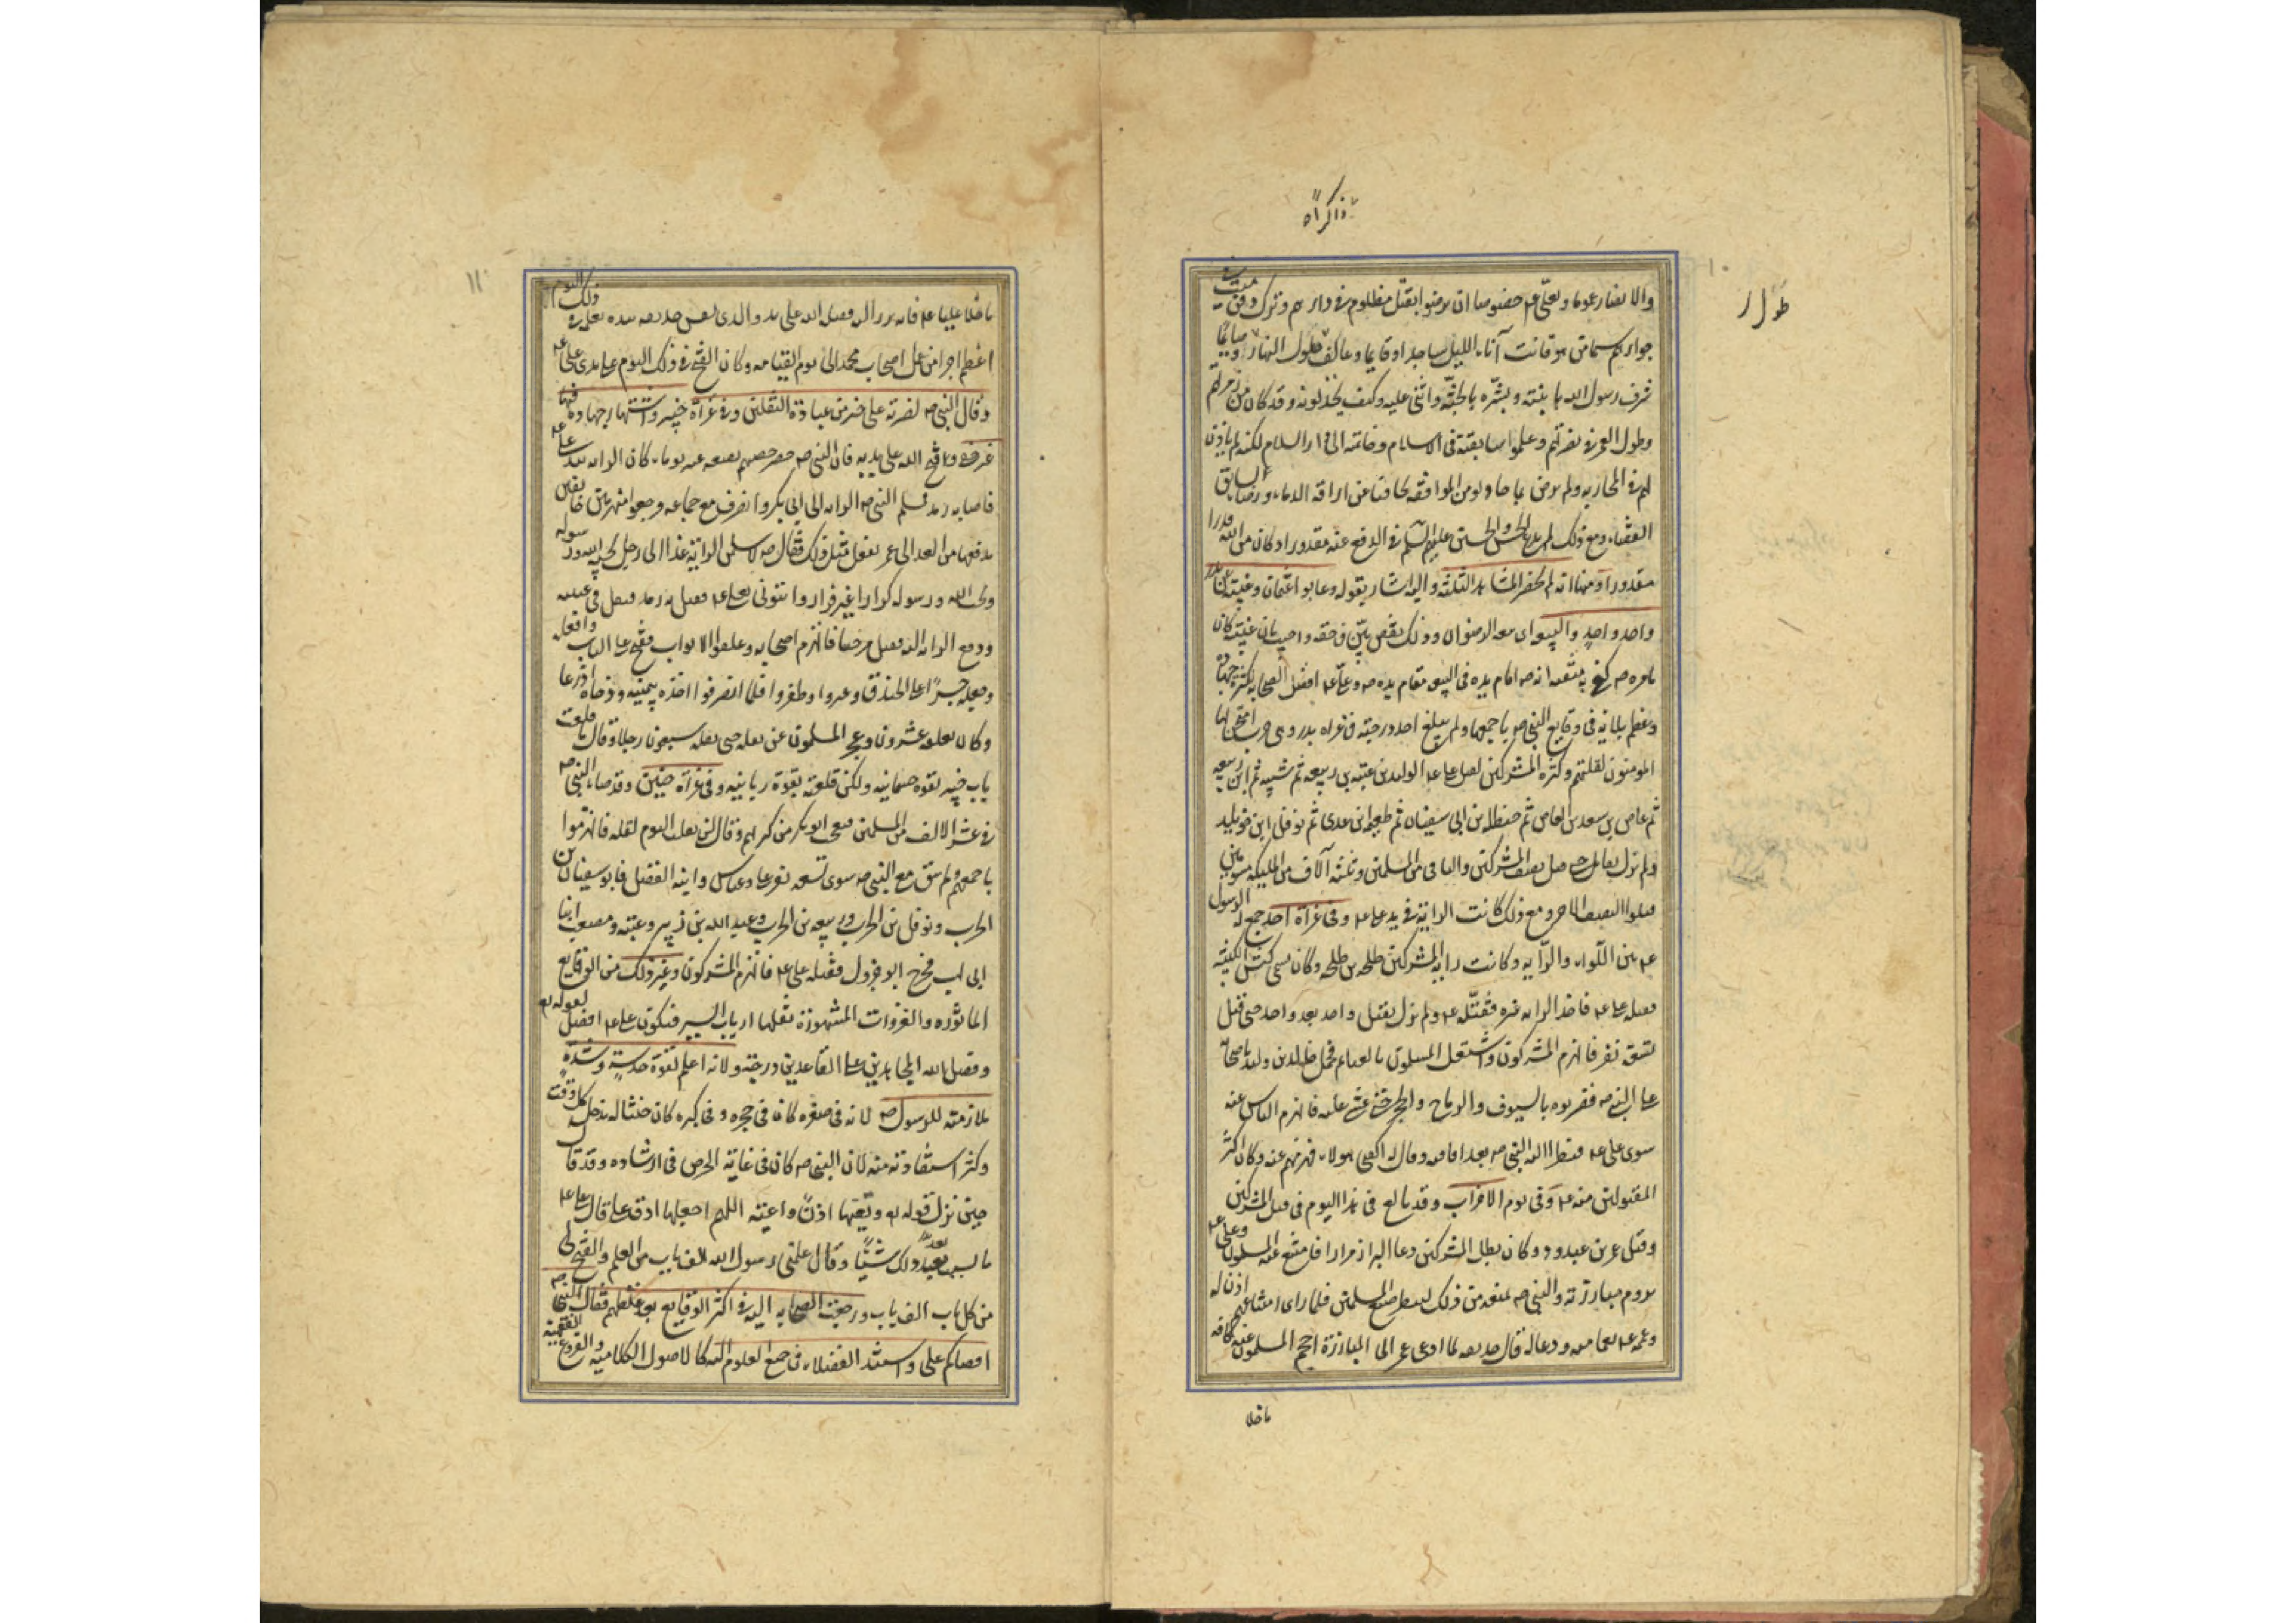 ذاكرا
طول
والانصار عموما وبعلي ع خصوصا ان يرضوا بقتل مظلوم في دارهم وترك دفن ميت في
جوارهم سيما من هو قانت آناء الليل ساجدا وقايما وعاكف طول النهار وصايما
شرف رسول الله بابنته وبشره بالجنة واثنى عليه وكيف يخذلونه وقد كان من زمرتهم
وطول العمر في نصرتهم وعلموا سابقته في الاسلام وخاتمته الى دار السلام لكنه لم ياذن
لهم في المحاربة ولم يرض بما حاولوه من الموافقة تحافيا عن اراقة الدماء ورضا بسابق
القضاء ومع ذلك لم يدع الحسن والحسين عليهم السلم في الدفع عنه مقدورا وكان من الله قدرا
مقدورا ومنها انه لم يحضر المشاهد الثلثة واليه اشار بقوله وعابوا عثمان وغيبته عن بدر
واحد واحد والبيعة اى بيعة الرضوان وذلك نقص بين في حقه واجيب بان غيبته كان
بامره ص كفى به منقبة انه ص اقام يده في البيعة مقام يده ص وعلي ع افضل الصحابة لكثرة جهاده
وعظم بلائه في وقايع النبي ص باجمعها ولم يبلغ احد درجته في غزاة بدر وهي حرب امتحن بها
المومنون لقلتهم وكثرة المشركين فقتل علي ع الوليد بن عتبة بن ربيعة ثم شيبة ثم ابن ربيعه
ثم عاص بن سعد بن العاص ثم حنظلة بن ابى سفيان ثم طعيمة بن عدى ثم نوفل ابن خويليد
ولم يزل يقاتل حتى قتل نصف المشركين والباقي من المسلمين وثلثة آلاف من الملئكة مسومين
قتلوا النصف الاخر ومع ذلك كانت الراية في يد علي ع وفي غزاة احد جمع له الرسول
ع بين اللواء والراية وكانت راية المشركين طلحة بن طلحة وكان يسمى كبش الكتيبة
فقتله علي ع فاخذ الراية غيره فقتله ع ولم يزل يقتل واحد بعد واحد حتى قتل
تسعة نفر فانهزم المشركون واشتغل المسلمون بالغنايم فحمل خالد بن وليد باصحابه
على النبي ص فضربوه بالسيوف والرماح والحجر حتى غشي عليه فانهزم الناس عنه
سوى علي ع فنظر اليه النبي ص بعد افاقته وقال له اكفنى هولاء فهزمهم عنه وكان اكثر
المقتولين منه ع وفي يوم الاحزاب وقد بالغ في هذا اليوم في قتل المشركين
وقتل عمرو بن عبدود وكان بطل المشركين دعا الى البراز مرارا فامتنع عنه المسلمون وعلي ع
يروم مبارزته والنبي ص يمنعه من ذلك لينظر صنع المسلمين فلما راى امتناعهم اذن له
وعممه بعمامته ودعا له قال حذيفه لما ادعى عمرو الى المبارزة احجم المسلمون عنه كافه
ماخلا
١١
ماخلا عليا ع فانه برز اليه فقتله الله على يده والذى نفس حذيفه بيده لعمله في ذلك اليوم
اعظم اجرا من عمل اصحاب محمد الى يوم القيامه وكان الفتح في ذلك اليوم على يدى علي ع
وقال النبي ص لضربة علي خير من عبادة الثقلين وفي غزاة خيبر واشتهار جهاده فيها
غير خفى وفتح الله على يديه فان النبي ص حصر حصنهم بضعة عشر يوما وكان الراية بيد علي ع
فاصابه رمد فسلم النبي ص الراية الى ابى بكر وانصرف مع جماعة فرجعوا منهزمين خايفين
فدفعها من الغد الى عمر ففعل مثل ذلك فقال ص لاسلمن الراية غدا الى رجل يحبه الله ورسوله
ويحب الله ورسوله كرارا غير فرار وايتونى بعلي ع فقيل به رمد فتفل في عينيه
ودفع الراية اليه فقتل مرحبا فانهزم اصحابه وغلقوا الابواب ففتح علي الباب واقتلعه
وجعله جسرا على الخندق وعبروا وظفروا فلما انصرفوا اخذه بيمينه ودحاه اذرعا
وكان يغلقه عشرون وعجز المسلمون عن نقله حتى نقله سبعون رجلا وقال ما قلعت
باب خيبر بقوة جسمانية ولكن قلعته بقوة ربانية وفي غزاة حنين وقد صار النبي ص
في عشرة الالف من المسلمين فتعجب ابو بكر من كثرتهم وقال لن نغلب اليوم لقلة فانهزموا
باجمعهم ولم يبق مع النبي ص سوى تسعة نفر علي وعباس وابنه الفضل وابو سفيان بن
الحرب ونوفل بن الحرث وربيعة بن الحرث وعبد الله بن زبير وعتبة ومصعب ابنا
ابى لهب فخرج ابو جرول فقتله علي ع فانهزم المشركون وغير ذلك من الوقايع
الماثورة والغزوات المشهورة نقلها ارباب السير فيكون علي ع افضل لقوله تع
وفضل الله المجاهدين على القاعدين درجة ولانه اعلم لقوة حدسه وشدة
ملازمته للرسول ص لانه في صغره كان في حجره وفي كبره كان ختنا له يدخل كل وقت
وكثر استفادته منه لان النبي ص كان في غاية الحرص في ارشاده وقد قال
حين نزل قوله تع وتعيها اذن واعية اللهم اجعلها اذن علي قال علي ع
ما نسيت بعد ذلك شيئا وقال علمنى رسول الله الف باب من العلم وانفتح لى
من كل باب الف باب ورجعت الصحابه اليه في اكثر الوقايع بعد غلطهم وقال النبي ص
اقضاكم علي واستند الفضلاء في جميع العلوم اليه كالاصول الكلامية والفروع الفقهية